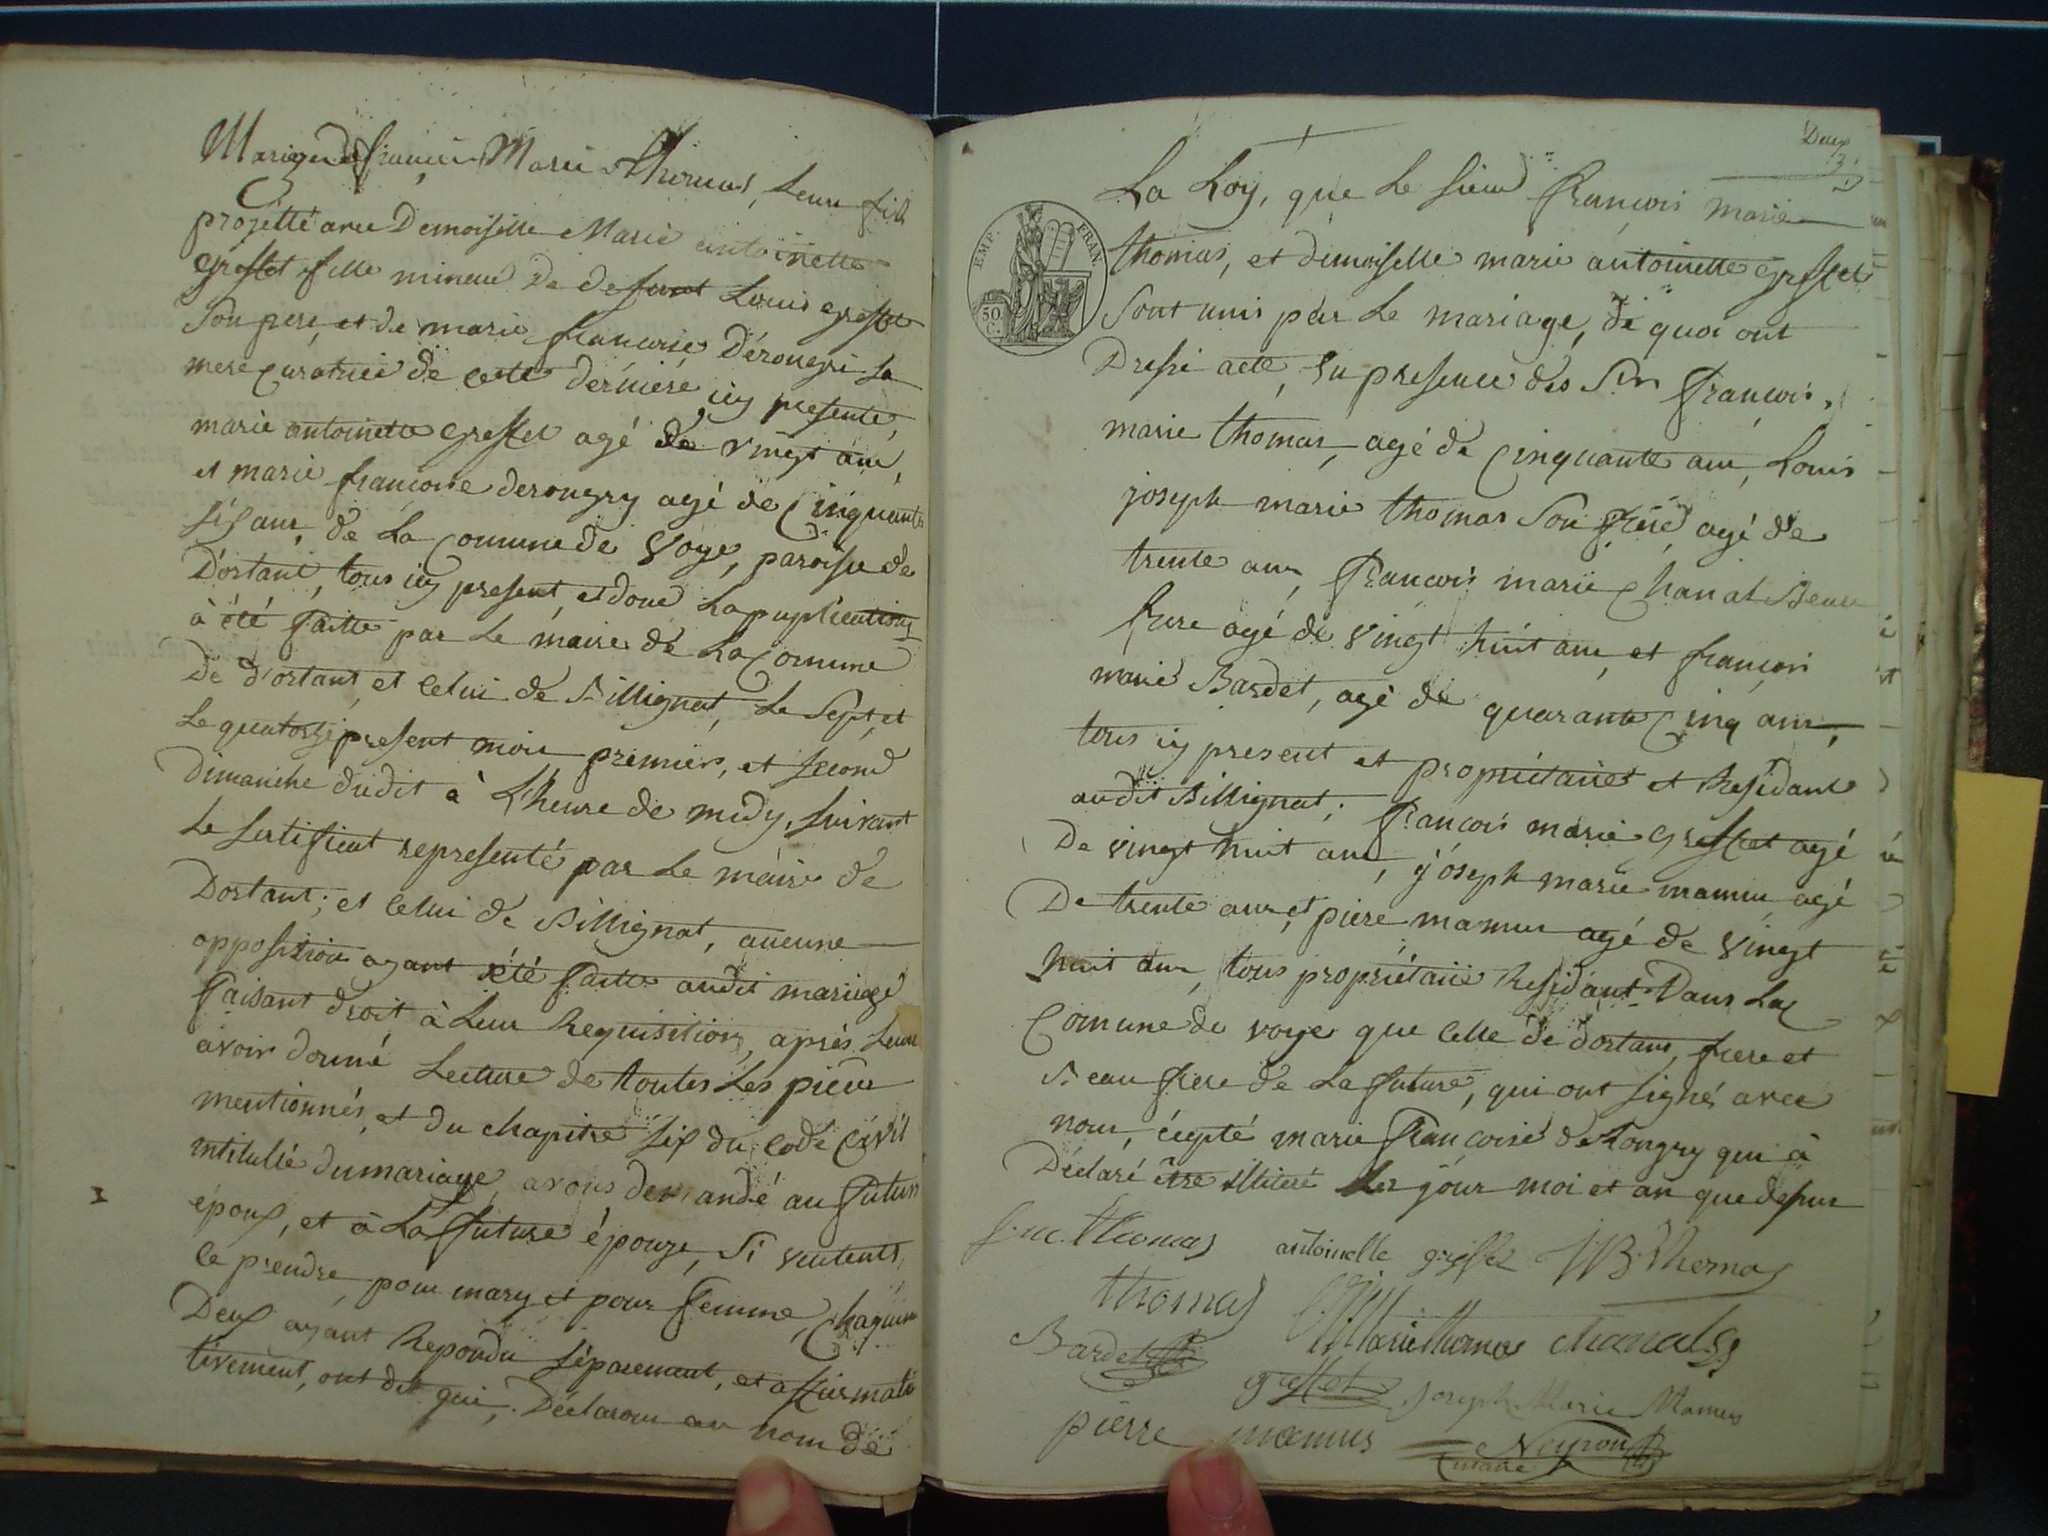 Mariage de françois Marie Thomas, Leur fils
projetté avec Demoiselle Marie antoinette
Greffet fille mineur de defunt Louis Greffet
son pere, et de marie francoise Dérongri sa
mere curatrice de cette derniere, icy presente,
marie antoinette Greffet agé de vingt ans,
et marie francoise derongry agé de Cinquante
six ans, de La Comune de Voye, paroisse de
Dortant, tous icy present, et dont La puplication
à été faitte par Le maire de La Comune
De dortant, et Celui de Billignat, Le Sept et
Le quatorse present mois premier, et second
Dimanche dudit à L'heure de midy, suivant
Le sertificat representé par Le maire de
Dortant; et Celui de Billignat, aucune
opposition ayant été faitte audit mariage
faisant droit à Leur Requisition, aprés Leur
avoir donné Lecture de toutes Les pièce
mentionnés, et du chapitre six du Code Civil
intitullé du mariage, avons demandé au futur
époux, et à La future épouze, si veulents
ce prendre pour mary et pour femme, Chaqu'un
Deux ayant Repondu séparement, et affirmati
tivement, ont dit qui, Déclarons au nom de
Deux
La Loy, que Le sieur françois marie
Thomas, et démoiselle marie antoinette Greffet
Sont unis par Le mariage, de quoi ont
Dressé acte, En presence des Srs françois
marie thomas, agé de Cinquante ans, Louis
joseph marie thomas Son frere, agé de
trente ans, francois marie Chanal Beau
frere agé de vingt huit ans, et françois
marie Bardet, agé de quarante Cinq ans,
tous icy present et propriétaires et Residant
audit Billignat; françois marie Greffet agé
De vingt huit ans, joseph marie mamus agé
De trente ans, et piere mamus agé de vingt
huit ans, tous propriétaire Residant Dans La
Comune de voye que Celle de dortant, frere et
Beau frere de La future, qui ont signé avec
nous, éxpté marie françoise deRongry qui à
Déclaré être illitéré Les jour moi et an que dessus
EMP. FRAN.
50 C.
f. m. thomas antoinelle greffet JB. Thomas
thomas Marie thomas chanal
Bardet
greffet Joseph Marie Mamus
pierre mamus Neyron
maire